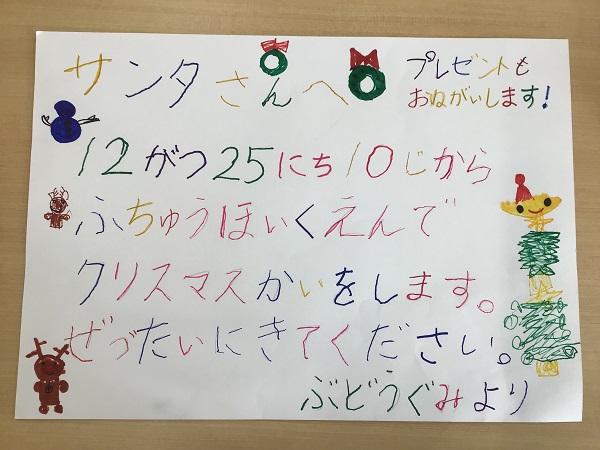 サンタさんへ
プレゼントも
おねがいします!
12がつ25にち10じから
ふちゅうほいくえんで
クリスマスかいをします。
ぜったいにきてください。
ぶどうぐみより